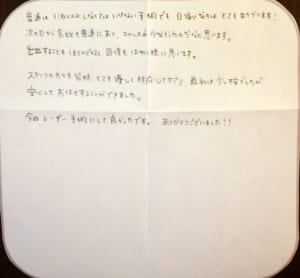 普通は1ヶ月入院しなくてはいけない手術でも 日帰りなのは とても助かります!
次の日から食欲も普通にあり、ストレスが少なかったのだなと思います。
出血することもほとんどなく 回復も はやい様に思います。
スタッフの方々も皆様 とても優しく対応して下さり 最初は少し 不安でしたが
安心しておまかせすることができました。
今回 レーザー手術にして良かったです。 ありがとうございました!!